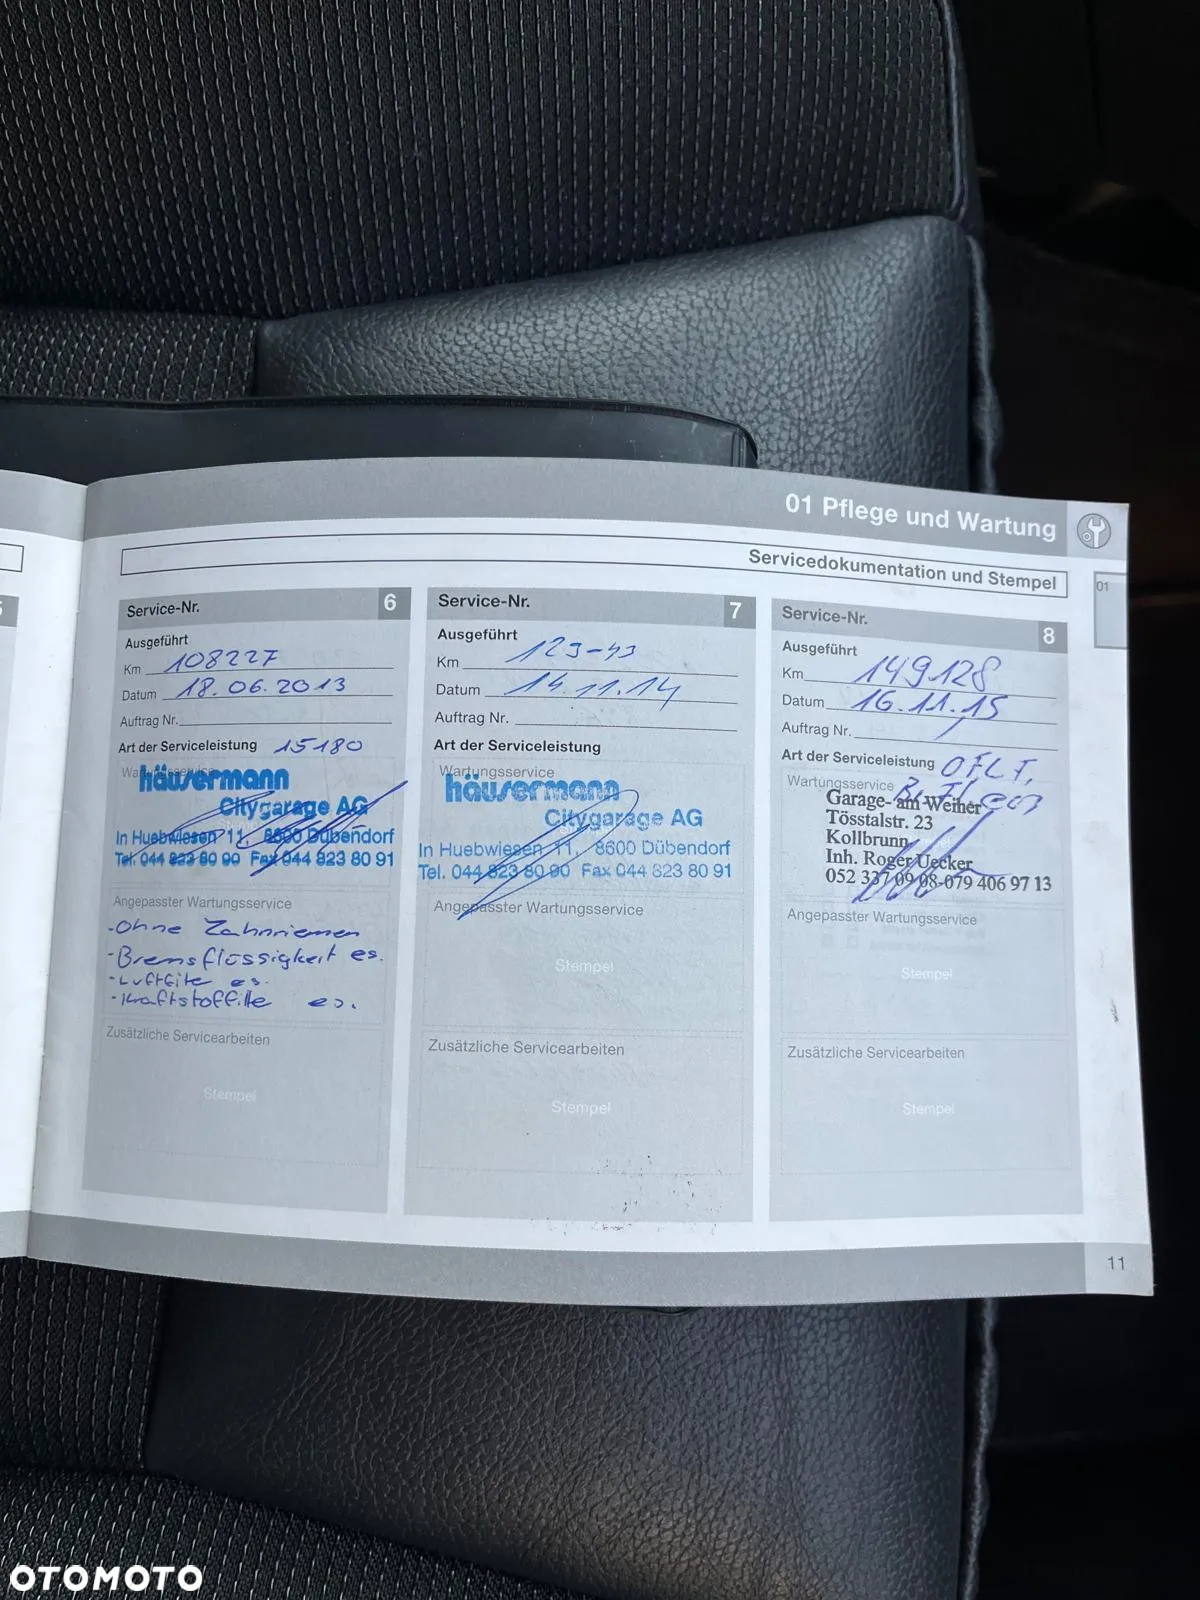 01 Pflege und Wartung
Servicedokumentation und Stempel
01
Service-Nr. 6
Ausgeführt
Km 108227
Datum 18.06.2013
Auftrag Nr.
Art der Serviceleistung 15180
Wartungsservice
häusermann
Citygarage AG
In Huebwiesen 11, 8600 Dübendorf
Tel. 044 823 80 90 Fax 044 823 80 91
Angepasster Wartungsservice
-Ohne Zahnriemen
-Bremsflüssigkeit es.
-Luftfilte es.
-Kraftstoffilte es.
Zusätzliche Servicearbeiten
Stempel
Service-Nr. 7
Ausgeführt
Km
Datum 14.11.14
Auftrag Nr.
Art der Serviceleistung
Wartungsservice
häusermann
Citygarage AG
In Huebwiesen 11, 8600 Dübendorf
Tel. 044 823 80 90 Fax 044 823 80 91
Angepasster Wartungsservice
Stempel
Zusätzliche Servicearbeiten
Stempel
Service-Nr. 8
Ausgeführt
Km 149128
Datum 16.11.15
Auftrag Nr.
Art der Serviceleistung
Wartungsservice
Garage- am Weiher
Tösstalstr. 23
Kollbrunn
Inh. Roger Uecker
052 337 09 08-079 406 97 13
Angepasster Wartungsservice
Stempel
Zusätzliche Servicearbeiten
Stempel
11
OTOMOTO